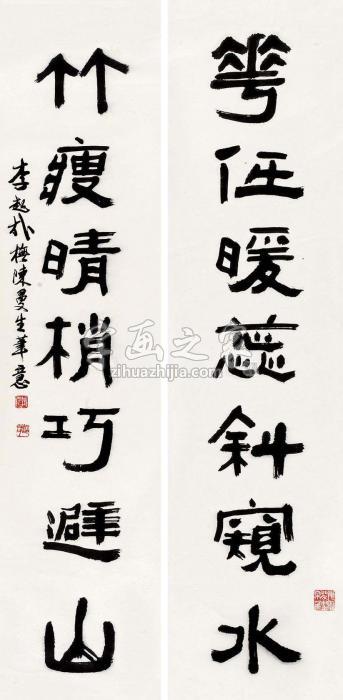 華低暖蕊斜窺水
竹瘦晴梢巧避山
李起橅陳曼生筆意
字画之家
zihuazhijia.com